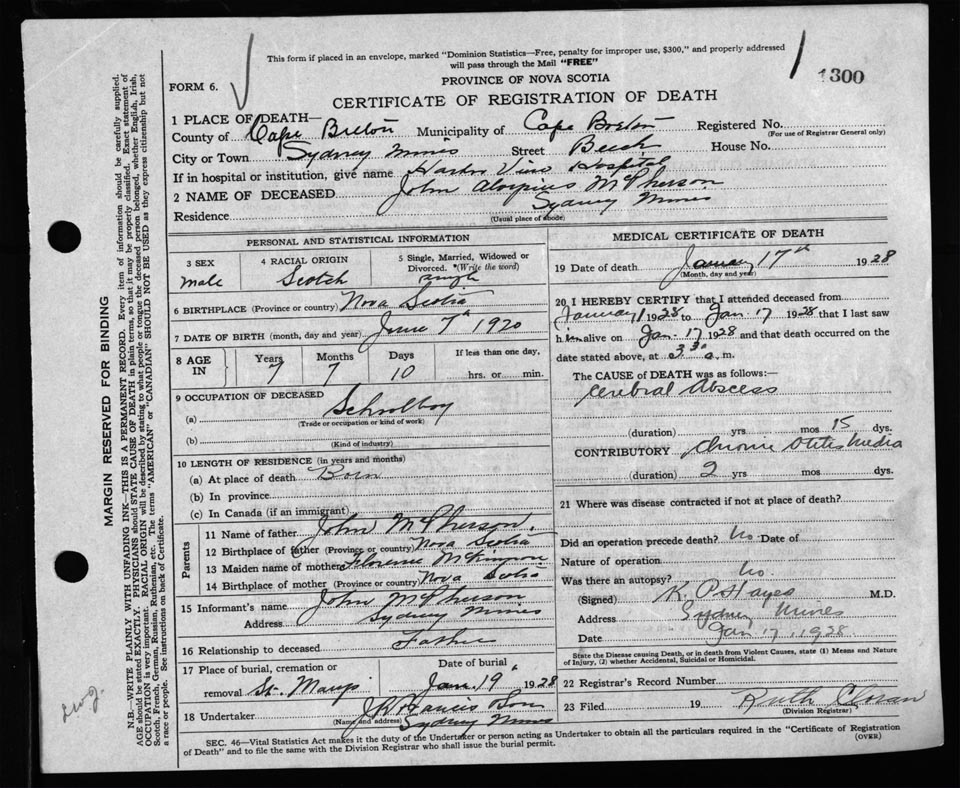 This form if placed in an envelope, marked "Dominion Statistics—Free, penalty for improper use, $300," and properly addressed
will pass through the Mail "FREE"
PROVINCE OF NOVA SCOTIA
1300
FORM 6.
CERTIFICATE OF REGISTRATION OF DEATH
1 PLACE OF DEATH—
County of Cape Breton Municipality of Cape Breton Registered No.
(For use of Registrar General only)
City or Town Sydney Mines Street Beech House No.
If in hospital or institution, give name Harbor View Hospital
2 NAME OF DECEASED John Aloysius McPherson
Residence Sydney Mines
(Usual place of abode)
PERSONAL AND STATISTICAL INFORMATION
3 SEX
male
4 RACIAL ORIGIN
Scotch
5 Single, Married, Widowed or
Divorced. (Write the word)
single
6 BIRTHPLACE (Province or country) Nova Scotia
7 DATE OF BIRTH (month, day and year) June 7th 1920
8 AGE IN
Years Months Days
7 7 10
If less than one day,
hrs. or min.
9 OCCUPATION OF DECEASED
(a) Schoolboy
(Trade or occupation or kind of work)
(b)
(Kind of industry)
10 LENGTH OF RESIDENCE (in years and months)
(a) At place of death Born
(b) In province
(c) In Canada (if an immigrant)
Parents
11 Name of father John McPherson
12 Birthplace of father (Province or country) Nova Scotia
13 Maiden name of mother Florence McKinnon
14 Birthplace of mother (Province or country) Nova Scotia
15 Informant's name John McPherson
Address Sydney Mines
16 Relationship to deceased Father
17 Place of burial, cremation or
removal St. Marys
Date of burial
Jan. 19 1928
18 Undertaker J K Francis Son
(Name and address) Sydney Mines
MEDICAL CERTIFICATE OF DEATH
19 Date of death January 17th 1928
(Month, day and year)
20 I HEREBY CERTIFY that I attended deceased from
January 1 1928 to Jan 17 1928 that I last saw
him alive on Jan 17 1928 and that death occurred on the
date stated above, at 3.30 a. m.
The CAUSE of DEATH was as follows:—
Cerebral Abscess
(duration) yrs mos 15 dys.
CONTRIBUTORY Chronic Otitis Media
(duration) 2 yrs mos dys.
21 Where was disease contracted if not at place of death?
Did an operation precede death? No Date of
Nature of operation
Was there an autopsy? No.
(Signed) K. P. Hayes M.D.
Address Sydney Mines
Date Jan 17, 1928
State the Disease causing Death, or in death from Violent Causes, state (1) Means and Nature
of Injury, (2) whether Accidental, Suicidal or Homicidal.
22 Registrar's Record Number
23 Filed 19 Ruth
(Division Registrar)
SEC. 46—Vital Statistics Act makes it the duty of the Undertaker or person acting as Undertaker to obtain all the particulars required in the "Certificate of Registration
of Death" and to file the same with the Division Registrar who shall issue the burial permit.
(OVER)
MARGIN RESERVED FOR BINDING
N.B.—WRITE PLAINLY WITH UNFADING INK—THIS IS A PERMANENT RECORD. Every item of information should be carefully supplied.
AGE should be stated EXACTLY. PHYSICIANS should STATE CAUSE OF DEATH in plain terms, so that it may be properly classified. Exact statement of
OCCUPATION is very important. RACIAL ORIGIN will be described by stating to what people or tongue the deceased person belonged, whether English, Irish,
Scotch, French, German, Russian, Ruthenian, etc. The terms "AMERICAN" or "CANADIAN" SHOULD NOT BE USED as they express citizenship but not
a race or people. See instructions on back of Certificate.